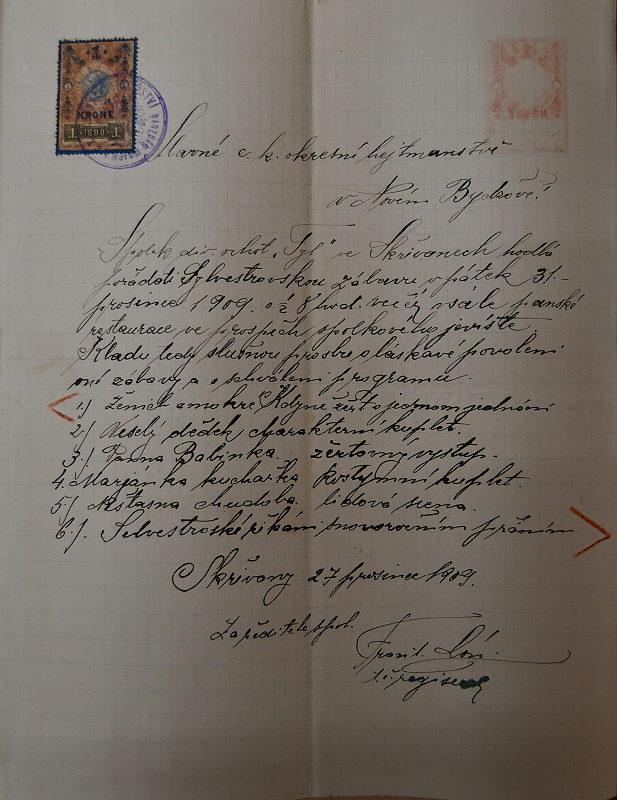 1
KRONE
1 1898 1
KRONE
Slavné c. k. okresní hejtmanství
v Novém Bydžově!
Spolek div. ochot. „Tyl" ve Skřivanech hodlá
pořádati Sylvestrovskou zábavu v pátek 31.
prosince 1909. o ½ 8 hod. večer v sale panské
restaurace ve prospěch spolkového jeviště.
Kladu tedy slušnou prosbu o láskavé povolení
oné zábavy a o schválení programu.
1.) Ženich amokre Kdyně žert o jednom jednání
2.) Veselý dědek charakterní kuplet.
3.) Panna Babinka. žertovný výstup.
4. Marjánka kuchařka kostymní kuplet.
5.) Nešťasna chudoba lidová scena.
6.). Selvestroské říkání s novoročním přáním
Skřivany 27 prosince 1909.
Za ředitele spol.
Frant.
t. č. regiseur